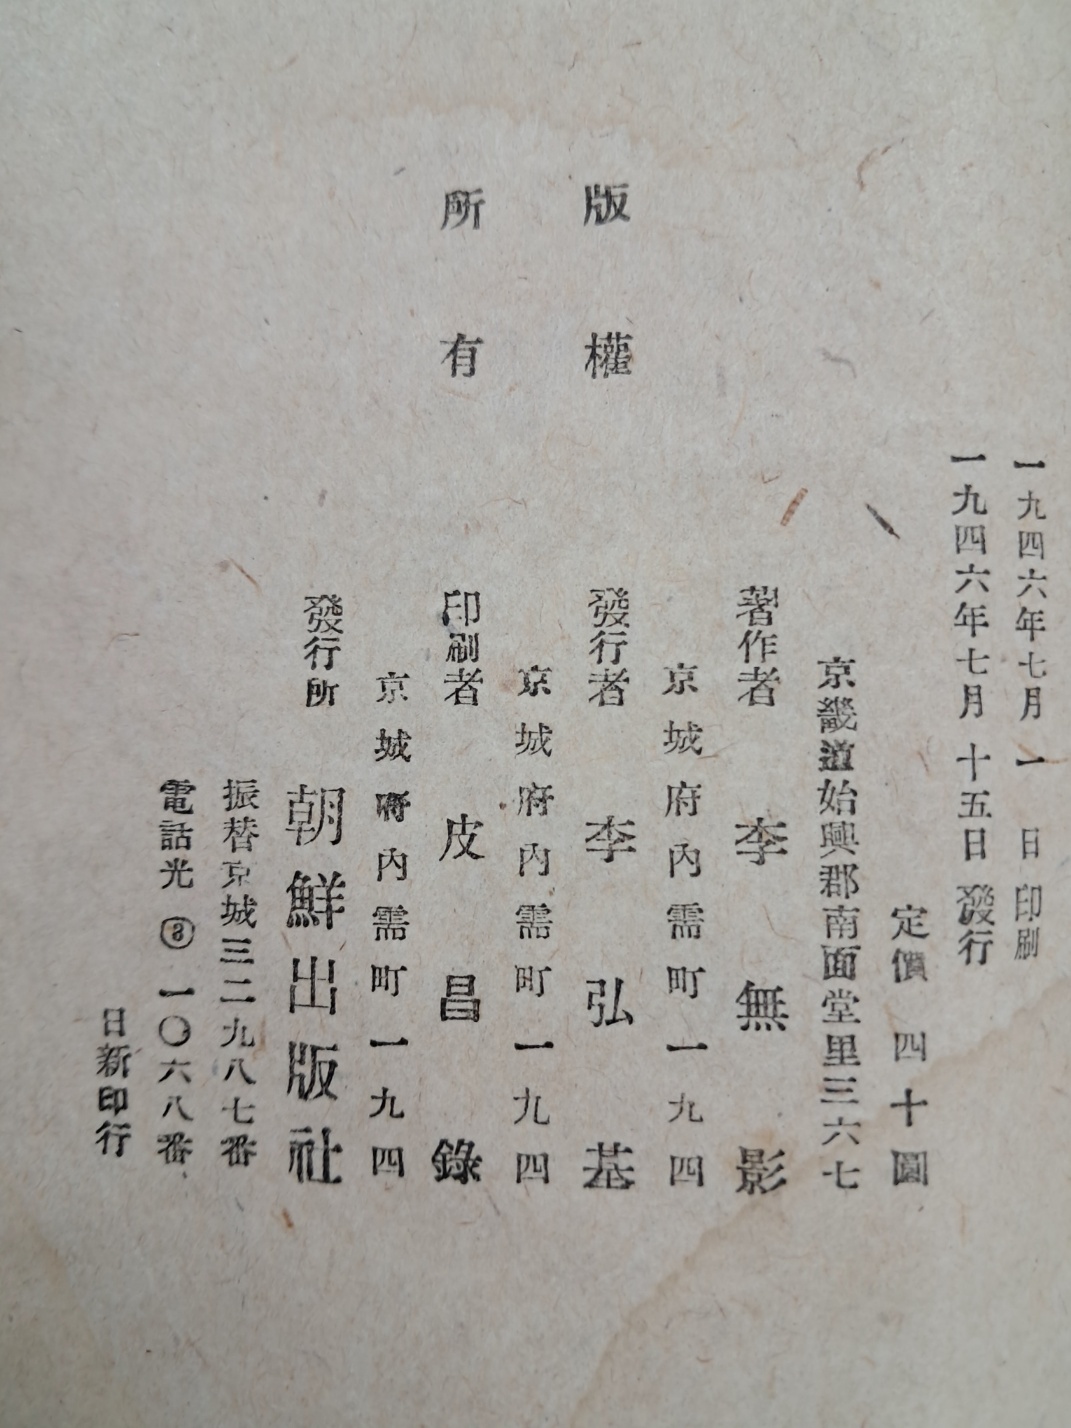 一九四六年七月一日印刷
一九四六年七月十五日發行
定價 四十圓
京畿道始興郡南面堂里三六七
著作者 李無影
京城府內需町一九四
版權
發行者 李弘基
京城府內需町一九四
所有
印刷者 皮昌錄
京城府內需町一九四
發行所 朝鮮出版社
振替京城三二九八七番
電話光③一〇六八番
日新印行